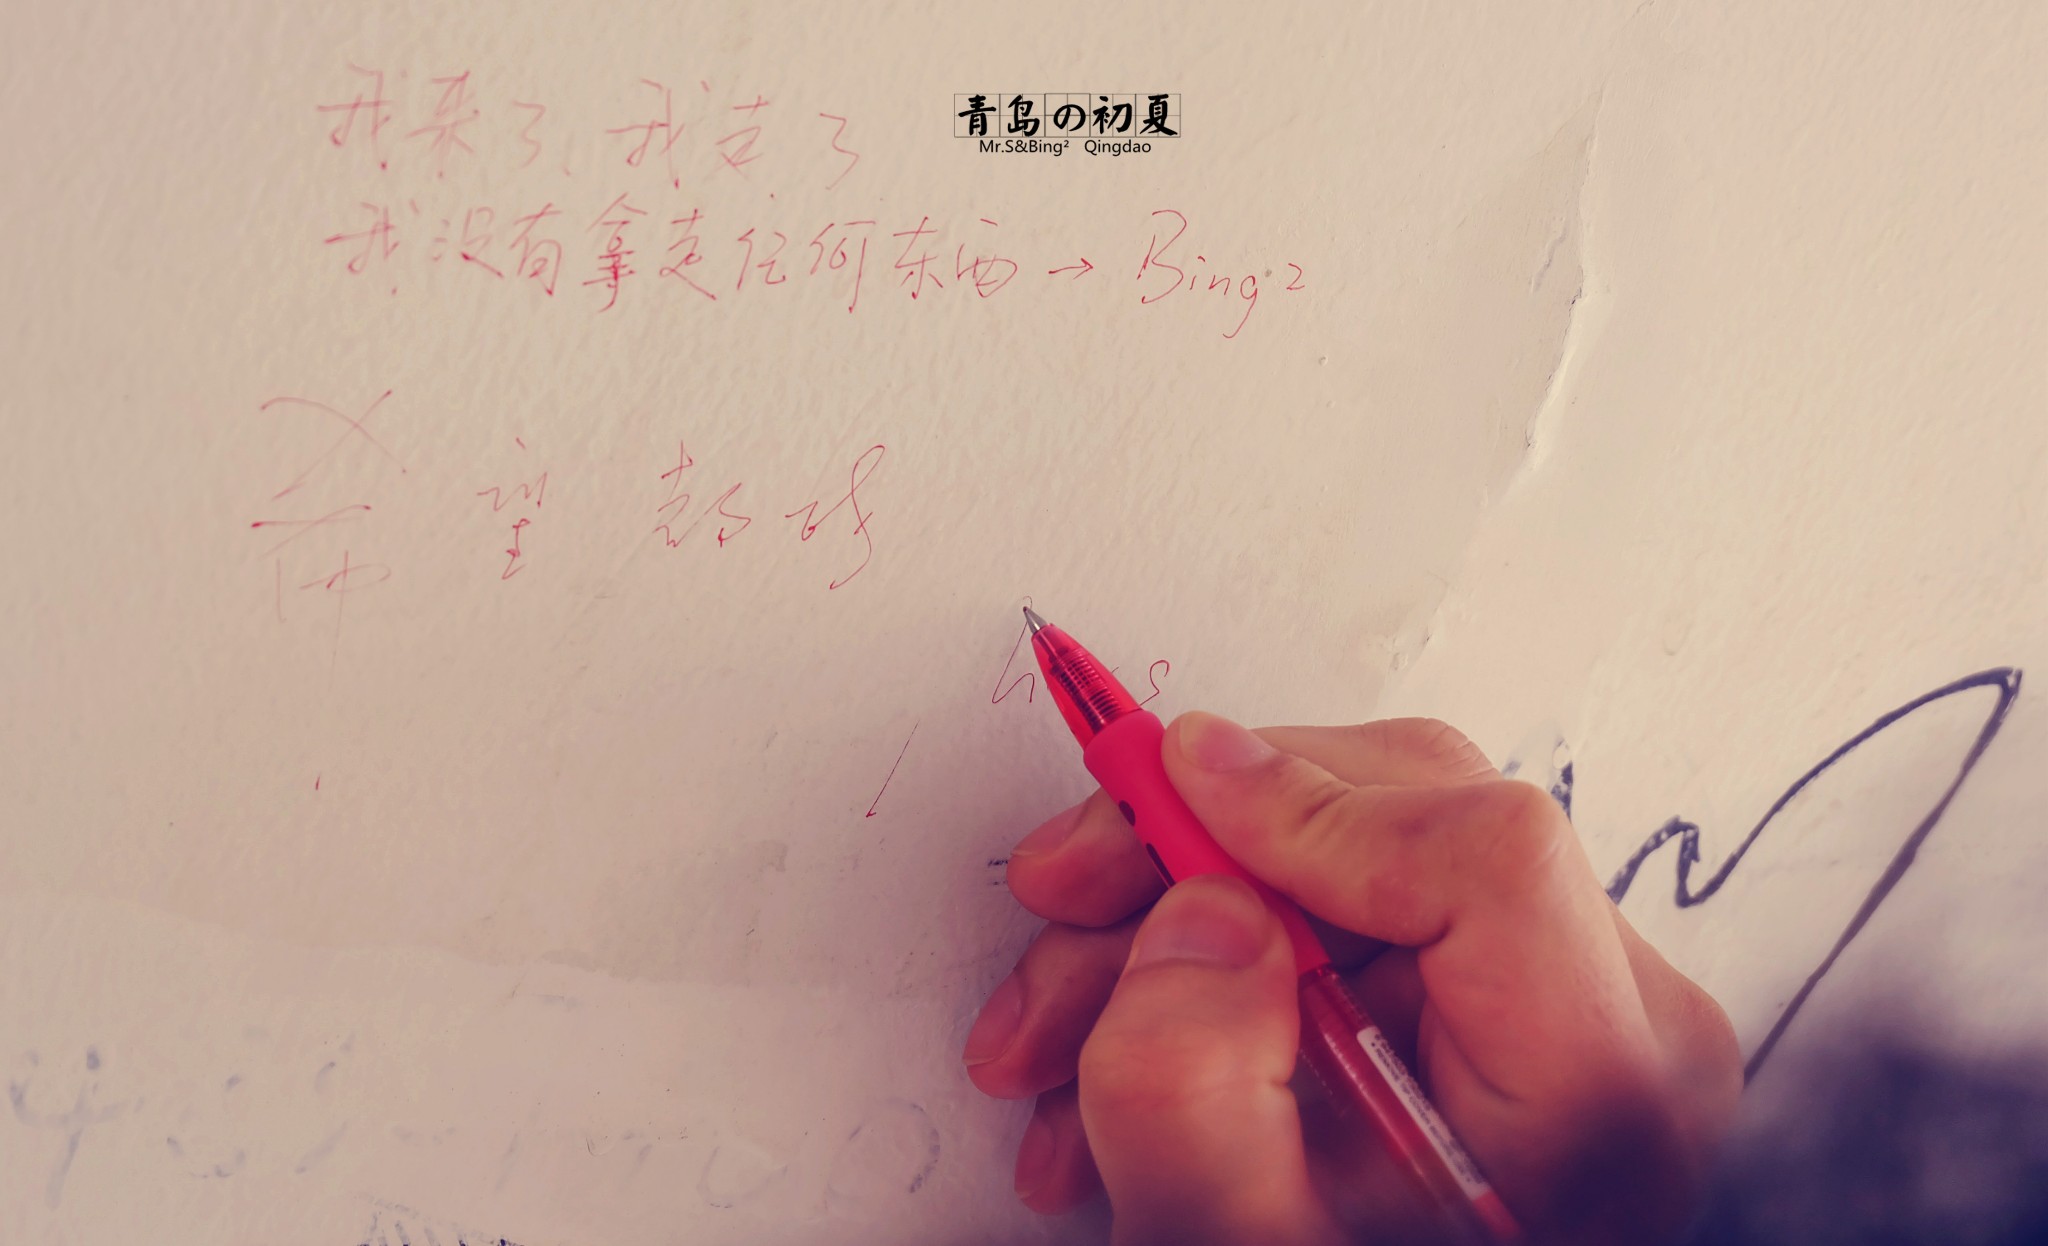 青岛の初夏
Mr.S&Bing² Qingdao
我来了、我走了
我没有拿走任何东西→Bing²
希望都好